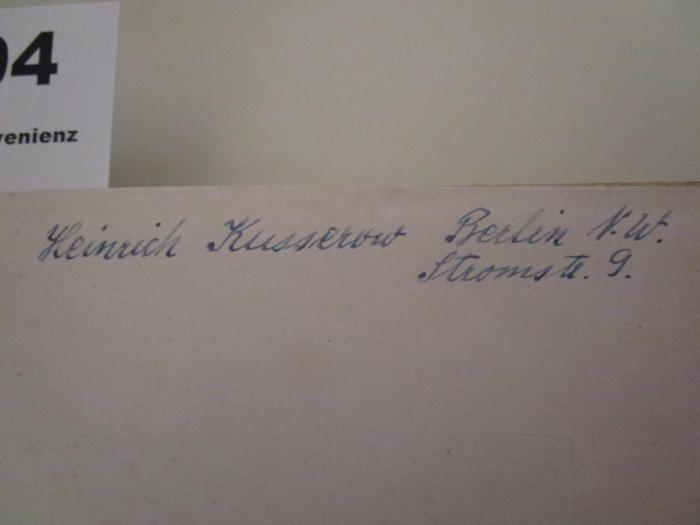 04
venienz
Heinrich Kusserow Berlin N.W.
Stromstr. 9.